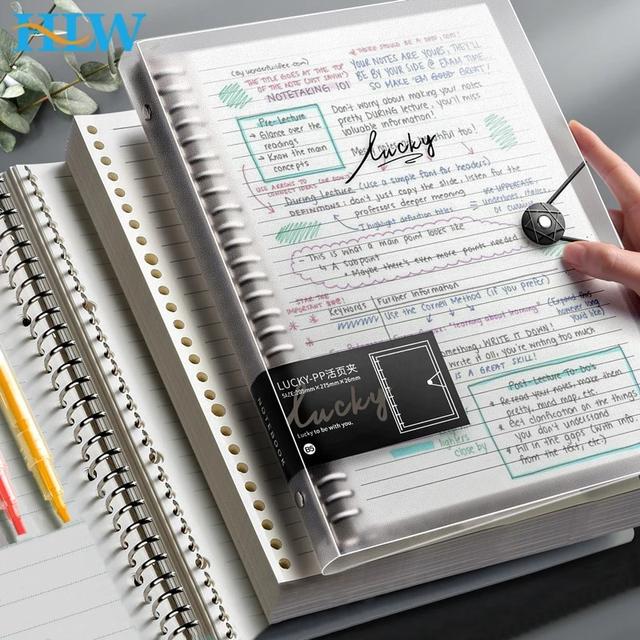 HLW
(ay wonderlustlee.com)
THE TITLE GOES AT THE TOP
OF THE NOTE (JUST SAYIN')
NOTETAKING 101
* THERE SHOULD BE A
YOUR NOTES ARE YOURS, THEY'LL
BE BY YOUR USE @ EXAM TIME...
SO MAKE 'EM GOOD GREAT!
Pre-Lecture
→ Glance over the
readings
→ Know the main
concepts
Don't worry about making your notes
pretty DURING lecture, you'll miss
valuable information!
lucky
thful too!
USE ARROWS TO
CONNECT IDEAS
During Lecture (use a simple font for headers)
DEFINITIONS: don't just copy the slide, listen for the
professors deeper meaning
Highlight definition titles
USE UPPERCASE,
underlines, italics,
or cursive
- This is what a main point looks like
↳ A subpoint
• Maybe there's even more points needed
STAR THE
IMPORTANT
Keywords
Further Information
Use the Cornell Method (if you prefer)
"learning about learning"
(Expand this
however long
you'd like)
something, WRITE IT DOWN!
Write it all, you're writing too much
IS A GREAT SKILL!
LUCKY-PP活页夹
SIZE:205mm×275mm×26mm
lucky
Lucky to be with you.
B5
NOTEBOOK
Post-Lecture To-Do's
• Re-read your notes, make them
pretty, mind map, etc.
• Get clarification on the things
you don't understand
• Fill in the gaps (with info
from the text, etc)
lighters
close by